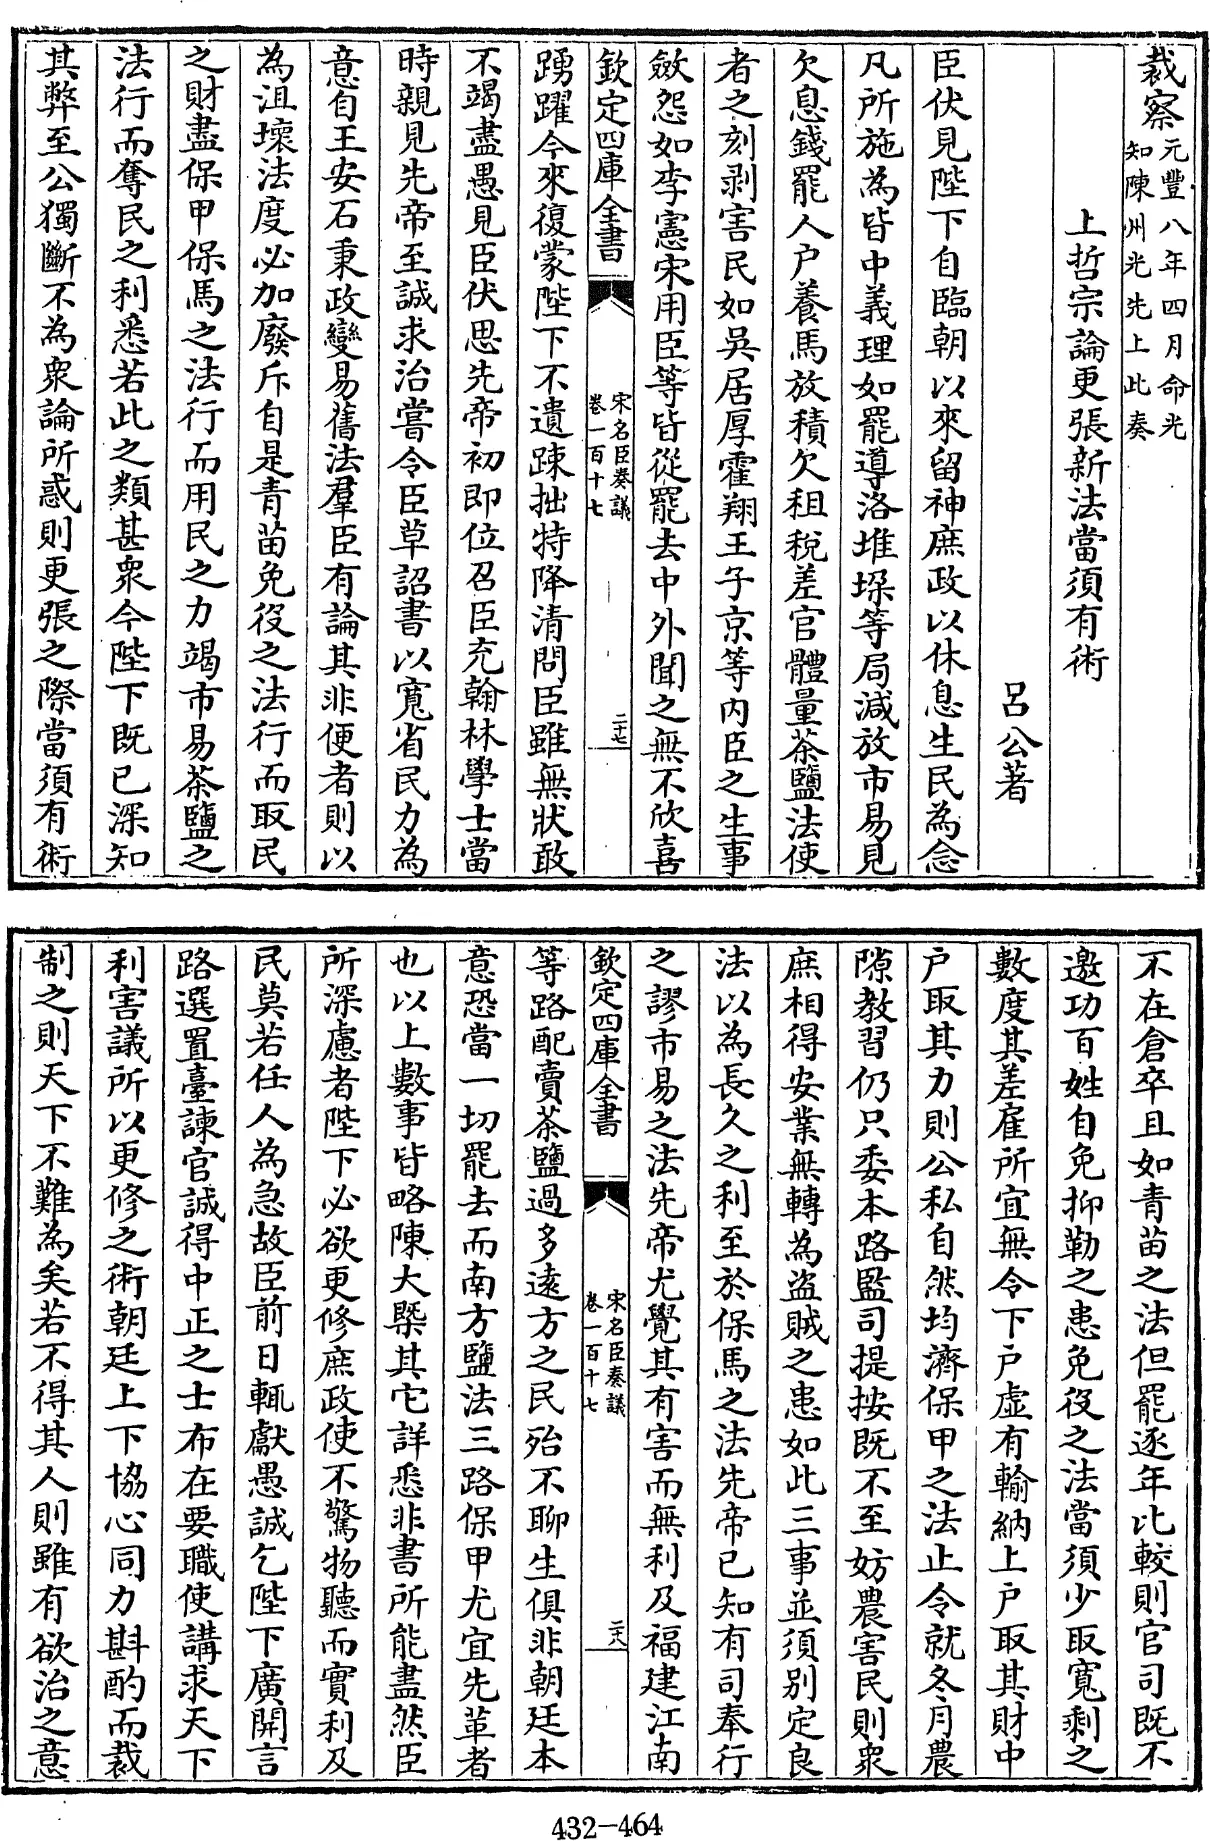 裁察元豐八年四月命光
知陳州光先上此奏
上哲宗論更張新法當須有術
呂公著
臣伏見陛下自臨朝以來留神庶政以休息生民為念
凡所施為皆中義理如罷導洛堆垜等局減放市易見
欠息錢罷人户養馬放積欠租稅差官體量茶鹽法使
者之刻剥害民如吳居厚霍翔王子京等内臣之生事
斂怨如李憲宋用臣等皆從罷去中外聞之無不欣喜
欽定四庫全書
宋名臣奏議
卷一百十七
二十七
踴躍今來復蒙陛下不遺踈拙特降清問臣雖無狀敢
不竭盡愚見臣伏思先帝初即位召臣充翰林學士當
時親見先帝至誠求治嘗令臣草詔書以寛省民力為
意自王安石秉政變易舊法羣臣有論其非便者則以
為沮壞法度必加廢斥自是青苗免役之法行而取民
之財盡保甲保馬之法行而用民之力竭市易茶鹽之
法行而奪民之利悉若此之類甚衆今陛下既已深知
其弊至公獨斷不為衆論所惑則更張之際當須有術
不在倉卒且如青苗之法但罷逐年比較則官司既不
邀功百姓自免抑勒之患免役之法當須少取寛剩之
數度其差雇所宜無令下户虚有輸納上户取其財中
户取其力則公私自然均濟保甲之法止令就冬月農
隙教習仍只委本路監司提按既不至妨農害民則衆
庶相得安業無轉為盗賊之患如此三事並須别定良
法以為長久之利至於保馬之法先帝已知有司奉行
之謬市易之法先帝尤覺其有害而無利及福建江南
欽定四庫全書
宋名臣奏議
卷一百十七
二十八
等路配賣茶鹽過多遠方之民殆不聊生俱非朝廷本
意恐當一切罷去而南方鹽法三路保甲尤宜先革者
也以上數事皆略陳大槩其它詳悉非書所能盡然臣
所深慮者陛下必欲更修庶政使不驚物聽而實利及
民莫若任人為急故臣前日輒獻愚誠乞陛下廣開言
路選置臺諫官誠得中正之士布在要職使講求天下
利害議所以更修之術朝廷上下協心同力斟酌而裁
制之則天下不難為矣若不得其人則雖有欲治之意
432-464